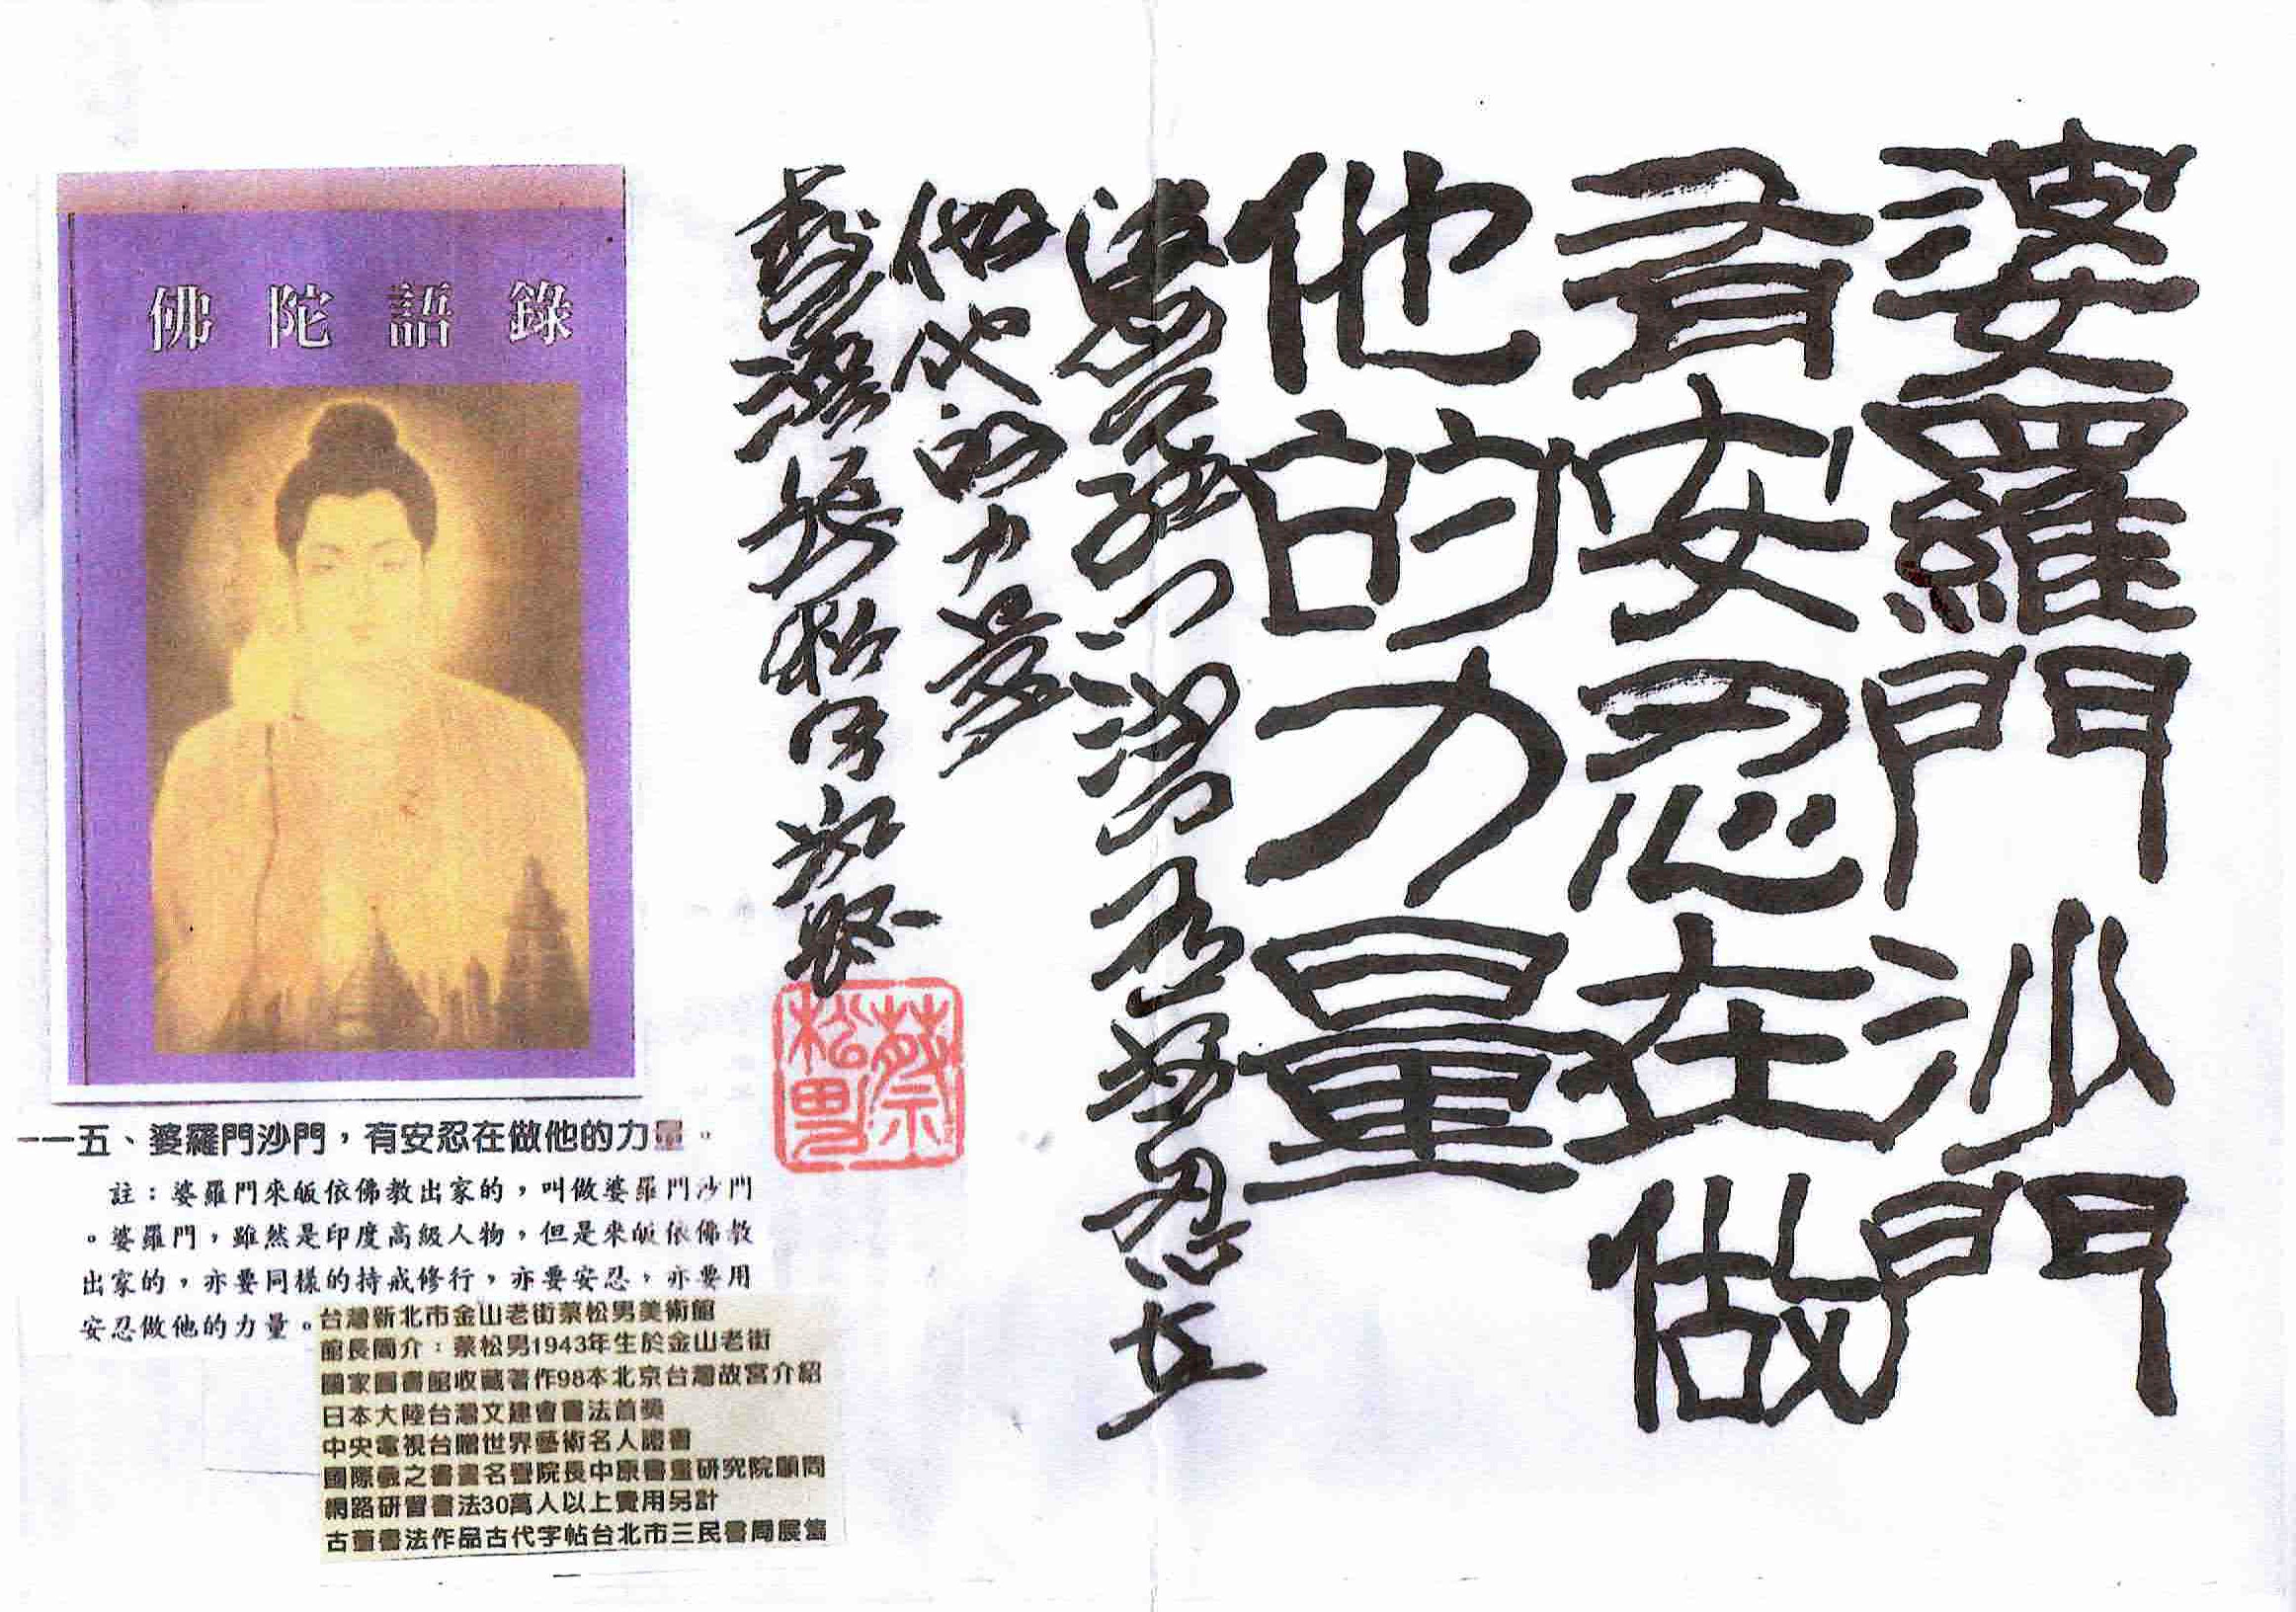 婆羅門沙門
有安忍在做
他的力量
婆羅門沙門有安忍在
做他的力量
臺灣蔡松男書
蔡松男
佛陀語錄
一一五、婆羅門沙門，有安忍在做他的力量。
註：婆羅門來皈依佛教出家的，叫做婆羅門沙門
。婆羅門，雖然是印度高級人物，但是來皈依佛教
出家的，亦要同樣的持戒修行，亦要安忍，亦要用
安忍做他的力量。
台灣新北市金山老街蔡松男美術館
館長簡介：蔡松男1943年生於金山老街
國家圖書館收藏著作98本北京台灣故宮介紹
日本大陸台灣文建會書法首獎
中央電視台贈世界藝術名人證書
國際羲之書畫名譽院長中康書畫研究院顧問
網路研習書法30萬人以上費用另計
古董書法作品古代字帖台北市三民書局展售